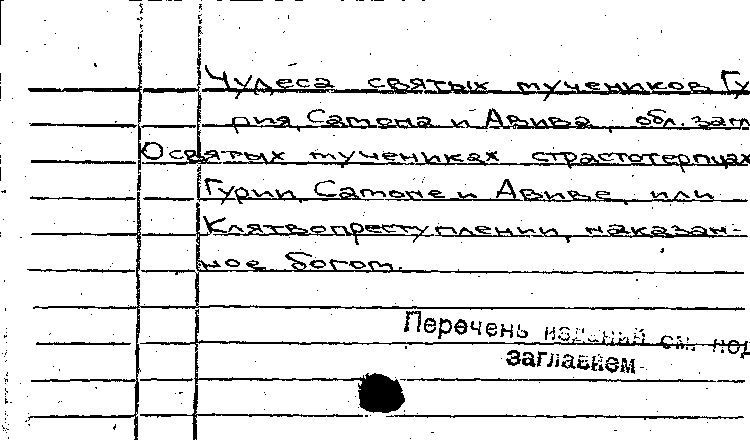 Чудеса святых мучеников Гу
рия, Самона и Авива, обл. загл
О святых мучениках страстотерпцах
Гурии, Самоне и Авиве, или
Клятвопреступлении, наказан-
ное богом.
Перечень изданий см. под
заглавием